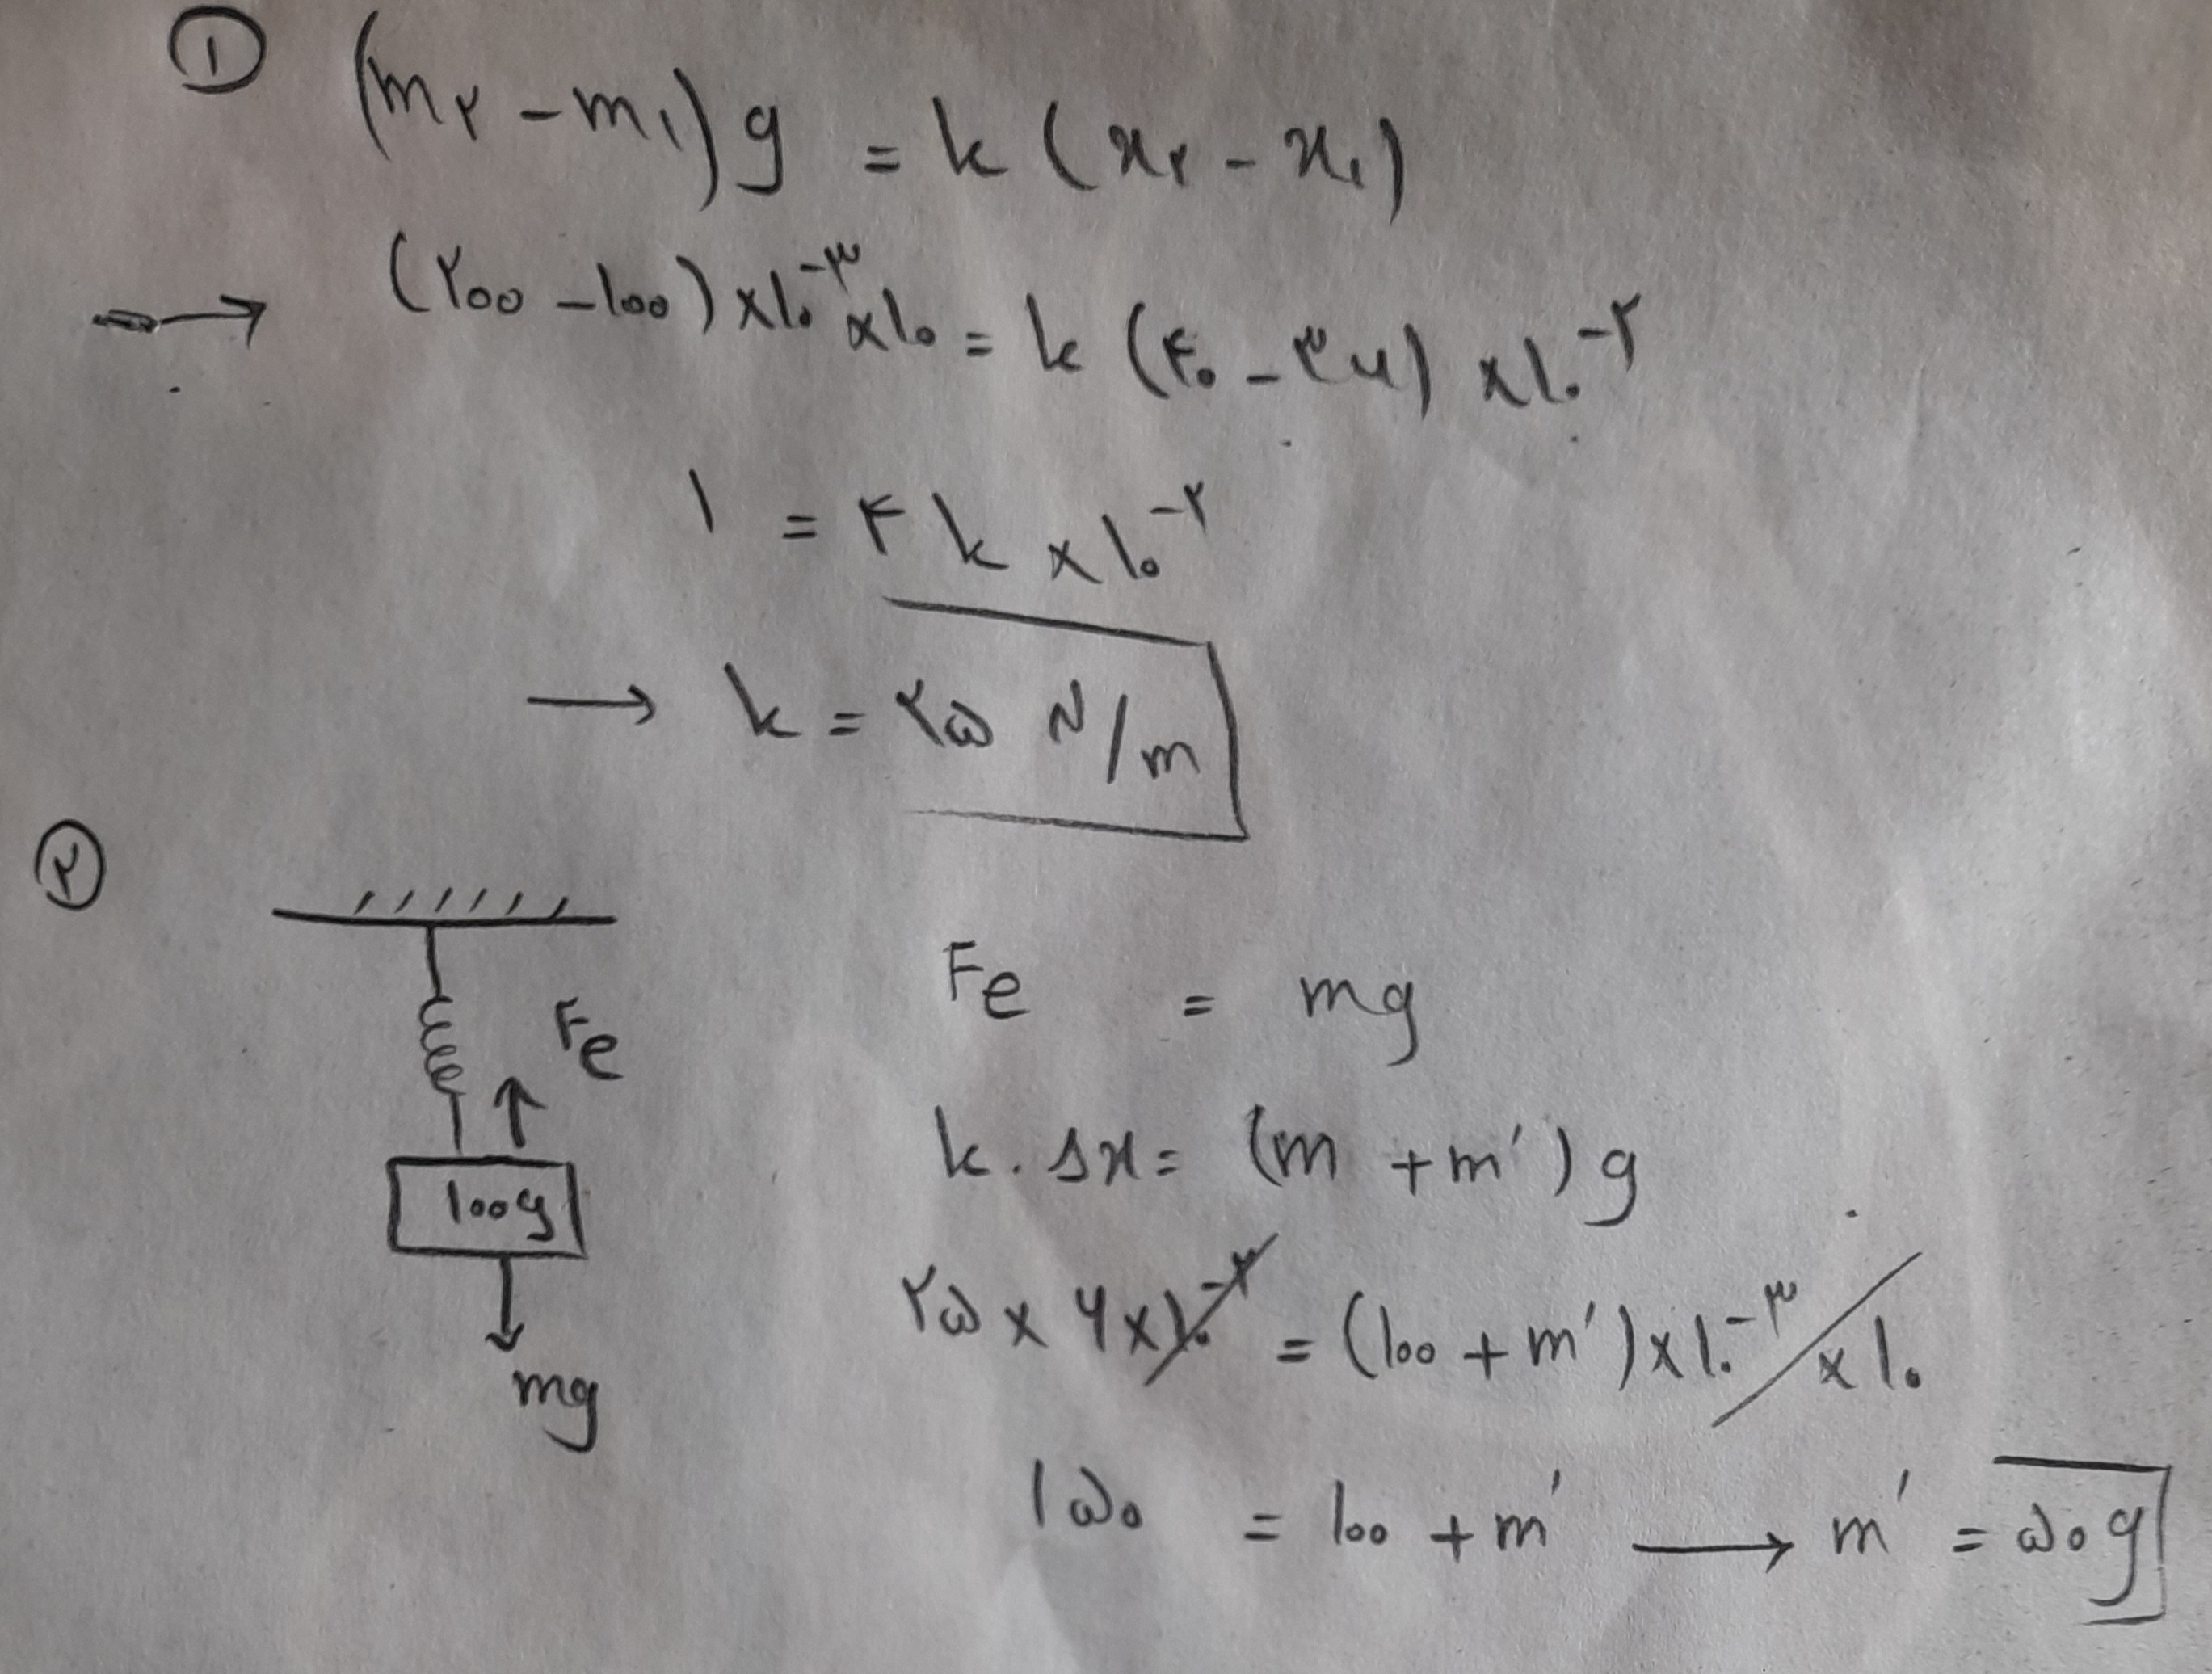 ① (m۲ - m۱) g = k (x۲ - x۱)
→ (۲۰۰ - ۱۰۰) × ۱۰^-۳ × ۱۰ = k (۴۰ - ۳۶) × ۱۰^-۲
۱ = ۴ k × ۱۰^-۲
→ k = ۲۵ N/m
②
Fe = mg
Fe
k . Δx = (m + m') g
۱۰۰g
۲۵ × ۶ × ۱۰^-۲ = (۱۰۰ + m') × ۱۰^-۳ × ۱۰
mg
۱۵۰ = ۱۰۰ + m' → m' = ۵۰ g